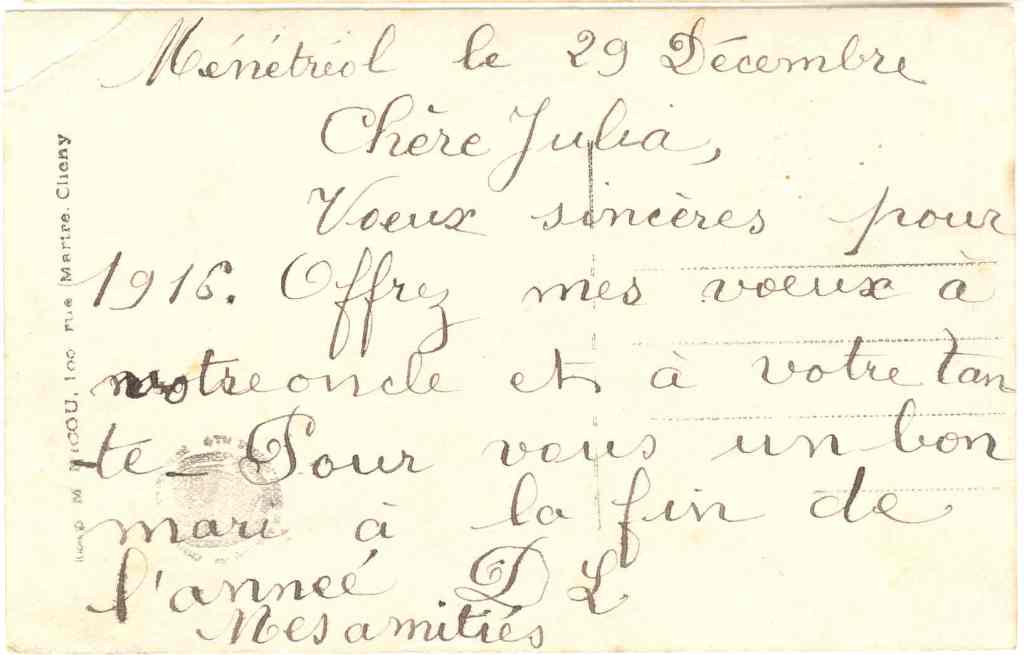 Ménétréol le 29 Décembre
Chère Julia,
Voeux sincères pour
1916. Offrez mes voeux à
votre oncle et à votre tan
te - Pour vous un bon
mari à la fin de
l'anneé D L
Mes amitiés
100 rue Martre. Clichy